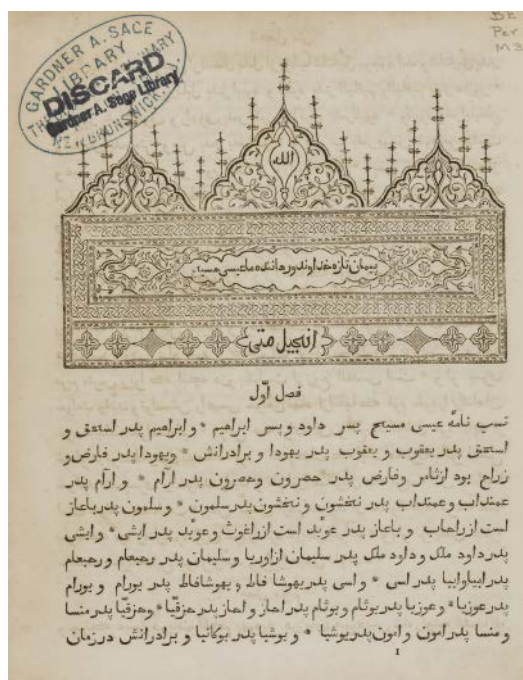 GARDNER A. SAGE
LIBRARY
DISCARD
Gardner A. Sage Library
NEW BRUNSWICK
BE
Per
M3
الله
پیمان تازه خداوند و رهاننده ما عیسی مسیح
انجیل متی
فصل اوّل
نسب نامه عیسی مسیح پسر داود و پسر ابراهیم * و ابراهیم پدر اسحق و
اسحق پدر یعقوب و یعقوب پدر یهودا و برادرانش * و یهودا پدر فارض و
زراح بود از ثامر و فارض پدر حصرون و حصرون پدر آرام * و آرام پدر
عمنداب و عمنداب پدر نخشون و نخشون پدر سلمون * و سلمون پدر باعاز
است از راحاب و باعاز پدر عوبد است از راغوث و عوبد پدر ایشی * و ایشی
پدر داود ملک و داود ملک پدر سلیمان از اوریا و سلیمان پدر رحبعام و رحبعام
پدر ابیا و ابیا پدر اسی * و اسی پدر یهوشافاط و یهوشافاط پدر یورام و یورام
پدر عوزیا * و عوزیا پدر یوثام و یوثام پدر احاز و احاز پدر حزقیا * و حزقیا پدر منسا
و منسا پدر امون و امون پدر یوشیا * و یوشیا پدر یوکانیا و برادرانش در زمان
1